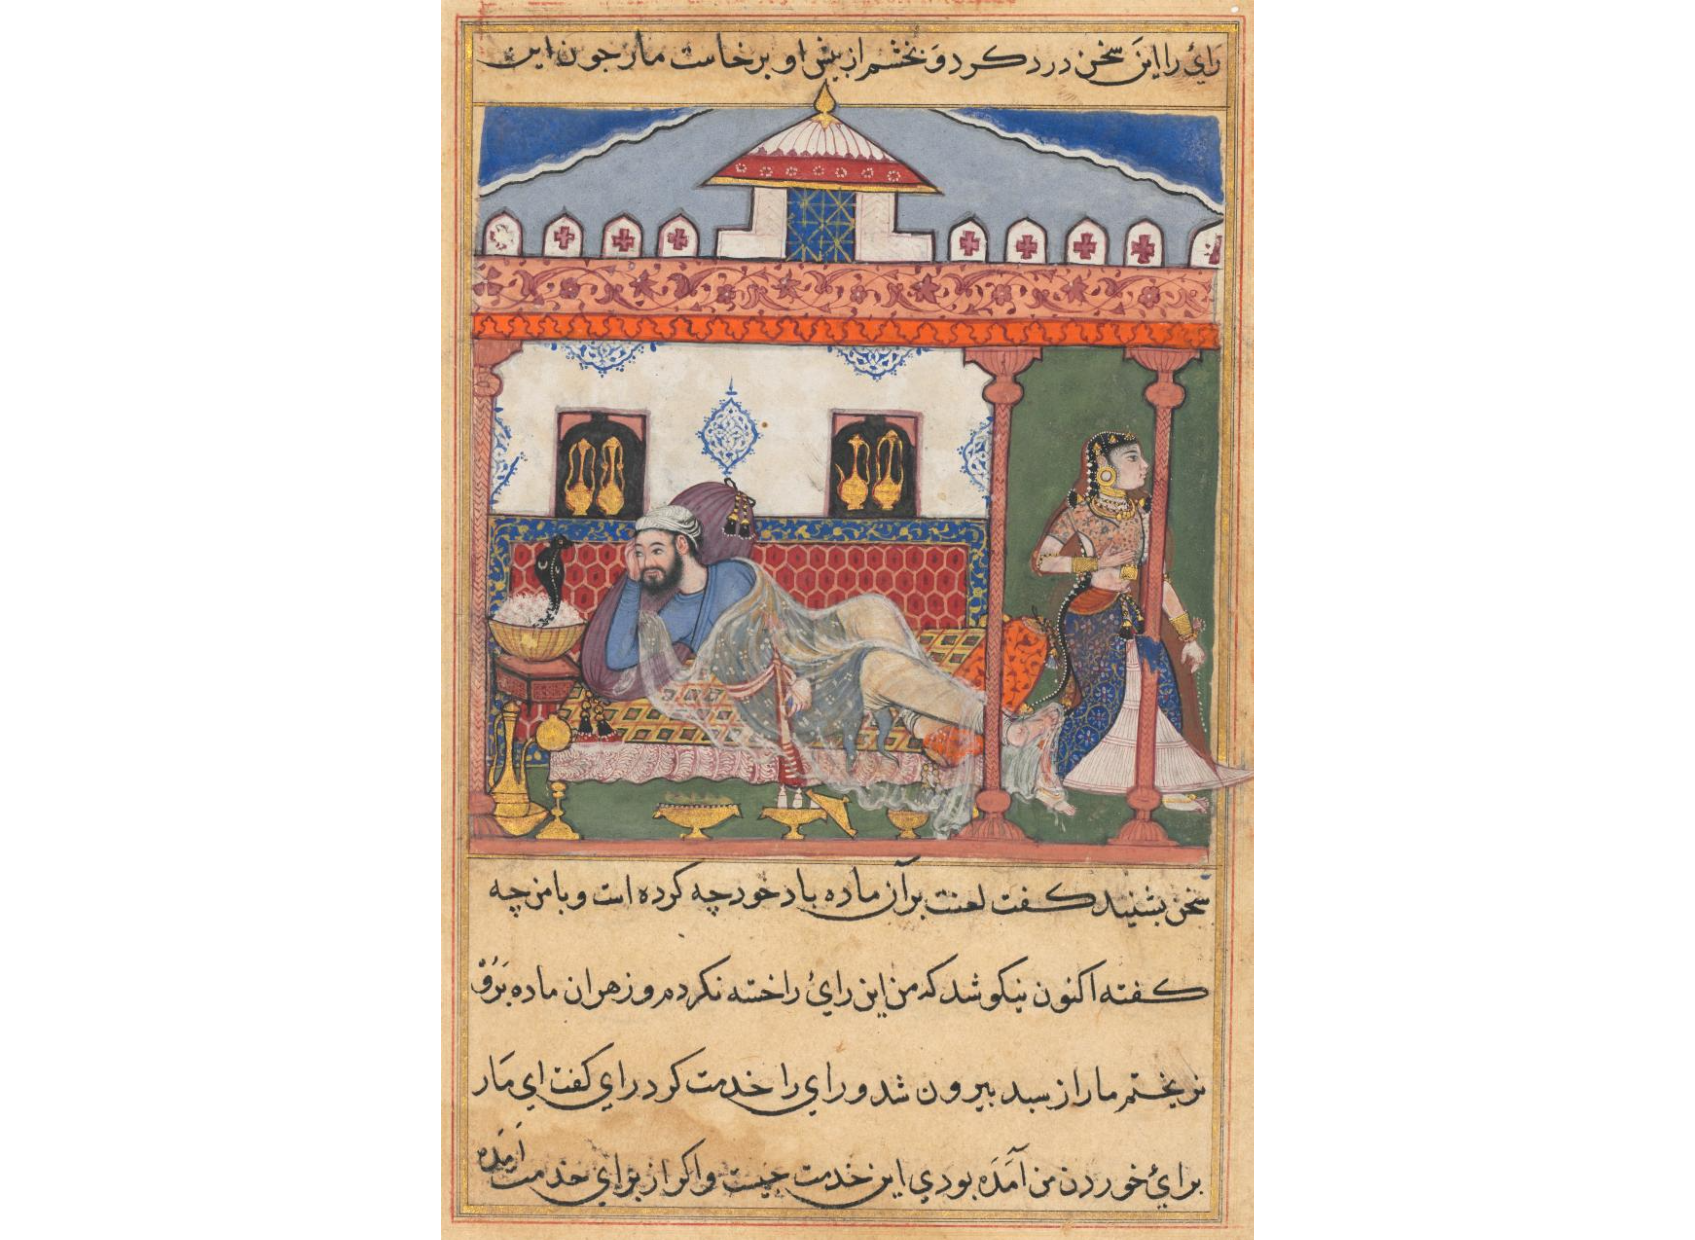 رای را این سخن درد کرد و بخشم از پیش او برخاست مار چون این
سخن بشنید کفت لعنت بر آن ماده باد خود چه کرده است و با من چه
کفته اکنون نیکو شد که من این رای را خسته نکردم و زهر ان ماده برو
نریختم مار از سبد بیرون شد و رای را خدمت کرد رای کفت ای مار
برای خوردن من آمده بودی این خدمت چیست و اکر از برای خدمت آمده